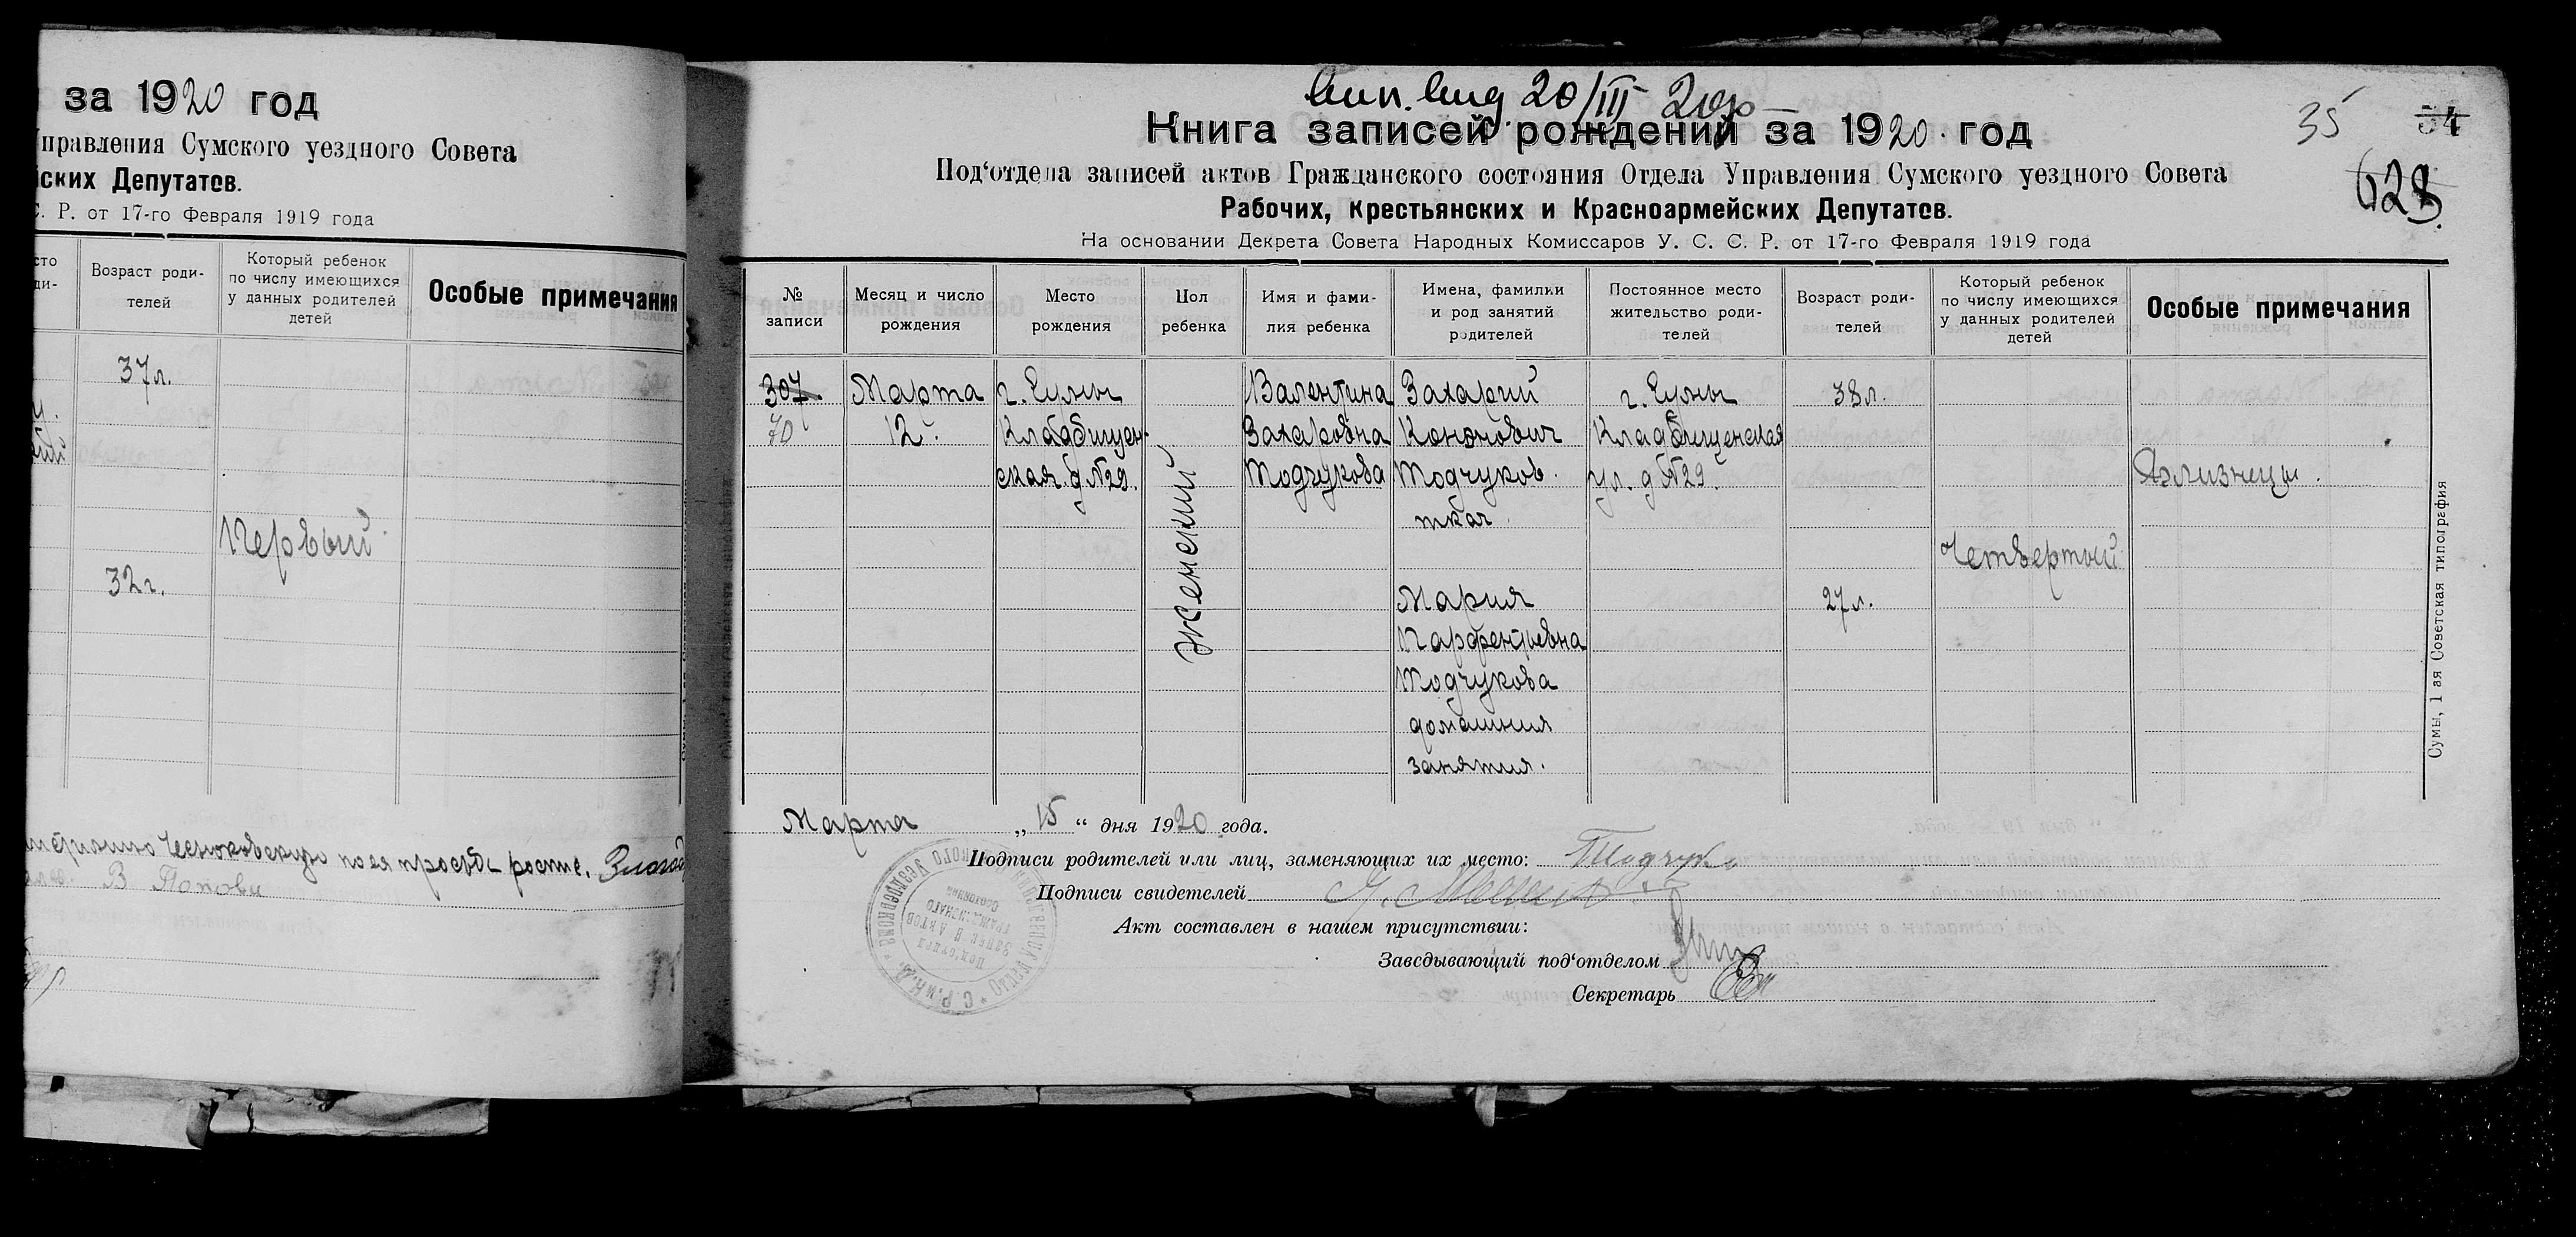 за 1920 год
Управления Сумского уездного Совета
йских Депутатов.
С. Р. от 17-го Февраля 1919 года
Возраст роди-
телей
Который ребенок
по числу имеющихся
у данных родителей
детей
Особые примечания
37 л.
Первый
32 г.
по ея просьбе
В Попов
вып. выд. 20/III 20
35
54
Книга записей рождений за 1920 год
628
Под'отдела записей актов Гражданского состояния Отдела Управления Сумского уездного Совета
Рабочих, Крестьянских и Красноармейских Депутатов.
На основании Декрета Совета Народных Комиссаров У. С. С. Р. от 17-го Февраля 1919 года
№
записи
Месяц и число
рождения
Место
рождения
Пол
ребенка
Имя и фами-
лия ребенка
Имена, фамилии
и род занятий
родителей
Постоянное место
жительство роди-
телей
Возраст роди-
телей
Который ребенок
по числу имеющихся
у данных родителей
детей
Особые примечания
307.
70
Марта
12.
г. Сумы
Кладбищен-
ская. д №29.
женский
Валентина
Захаровна
Подчукова
Захарий
Кононович
Подчуков.
ткач
Мария
Парфентьевна
Подчукова
домашния
занятия.
г. Сумы
Кладбищенская
ул. д №29.
38 л.
27 л.
Четвертый
Близнецы.
Сумы, 1 ая Советская типография
Марта „15“ дня 1920 года.
Подписи родителей или лиц, заменяющих их место:
Подписи свидетелей
Акт составлен в нашем присутствии:
Заведывающий под'отделом
Секретарь